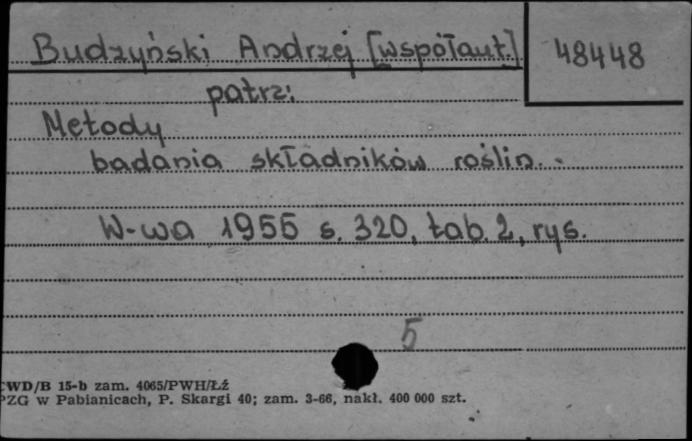 Budzyński Andrzej [współaut.] 48448
patrz:
Metody
badania składników roślin.
W-wa 1955 s. 320, tab. 2, rys.
5
CWD/B 15-b zam. 4065/PWH/Łź
PZG w Pabianicach, P. Skargi 40; zam. 3-66, nakł. 400 000 szt.